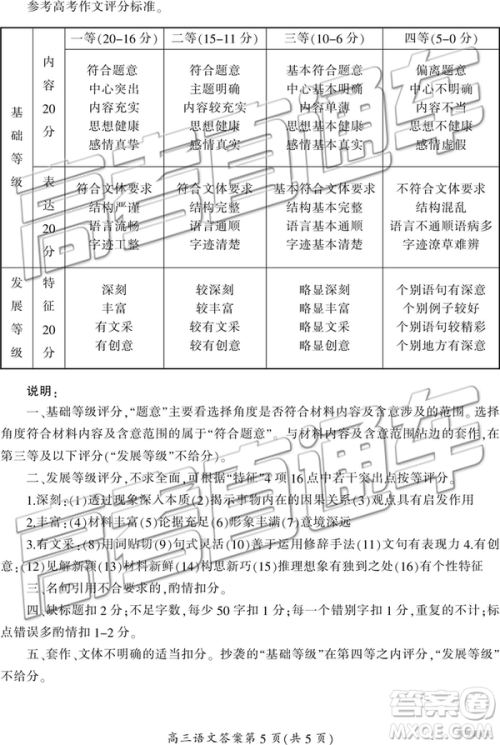 参考高考作文评分标准。
一等(20-16 分) 二等(15-11 分) 三等(10-6 分) 四等(5-0 分)
基础等级
内容20分
符合题意 符合题意 基本符合题意 偏离题意
中心突出 主题明确 中心基本明确 中心不明确
内容充实 内容较充实 内容单薄 内容不当
思想健康 思想健康 思想基本健康 思想不健康
感情真挚 感情真实 感情基本真实 感情虚假
表达20分
符合文体要求 符合文体要求 基本符合文体要求 不符合文体要求
结构严谨 结构完整 结构基本完整 结构混乱
语言流畅 语言通顺 语言基本通顺 语言不通顺语病多
字迹工整 字迹清楚 字迹基本清楚 字迹潦草难辨
发展等级
特征20分
深刻 较深刻 略显深刻 个别语句有深意
丰富 较丰富 略显丰富 个别例子较好
有文采 较有文采 略显文采 个别语句较精彩
有创意 较有创意 略显创意 个别地方有深意
说明：
一、基础等级评分，“题意”主要看选择角度是否符合材料内容及含意涉及的范围。选
择角度符合材料内容及含意范围的属于“符合题意”，与材料内容及含意范围沾边的套作，在
第三等及以下评分(“发展等级”不给分)。
二、发展等级评分，不求全面，可根据“特征”4 项 16 点中若干突出点按等评分。
1.深刻：(1)透过现象深入本质(2)揭示事物内在的因果关系(3)观点具有启发作用
2.丰富：(4)材料丰富(5)论据充足(6)形象丰满(7)意境深远
3.有文采：(8)用词贴切(9)句式灵活(10)善于运用修辞手法(11)文句有表现力 4.有创
意：(12)见解新颖(13)材料新鲜(14)构思新巧(15)推理想象有独到之处(16)有个性特征
三、名句引用不合要求的，酌情扣分。
四、缺标题扣 2 分；不足字数，每少 50 字扣 1 分；每一个错别字扣 1 分，重复的不计；标
点错误多酌情扣 1-2 分。
五、套作、文体不明确的适当扣分。抄袭的“基础等级”在第四等之内评分，“发展等级”
不给分。
高三语文答案第 5 页(共 5 页)
高考直通车
高考直通车
答案圈